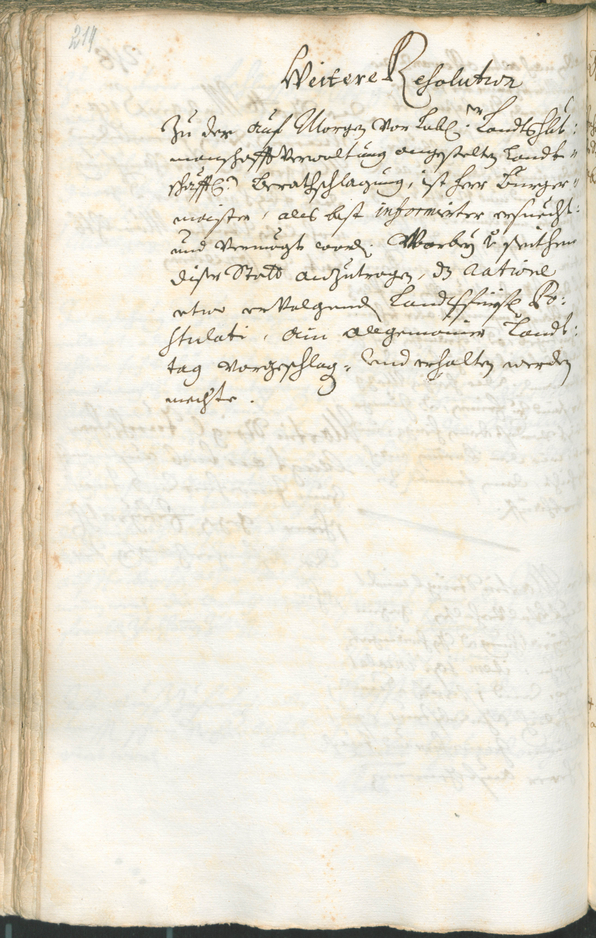 214
Weitere Resolution
Zu der auf Morgen vor Lobl: Landtshaubt:
manschafft Verwaltung angestelten Landt=
schafftl: Berathschlagung, ist herr Burger=
maister, als best informirter ersuecht:
und vermögt word: Warbey
diser Statt anzutragen, dz ratione
etwo ervolgend Landtsfürstl: Po:
stulati, ain allgemainer Landt:
tag vorgeschlag, und erhalten werden
mechte.